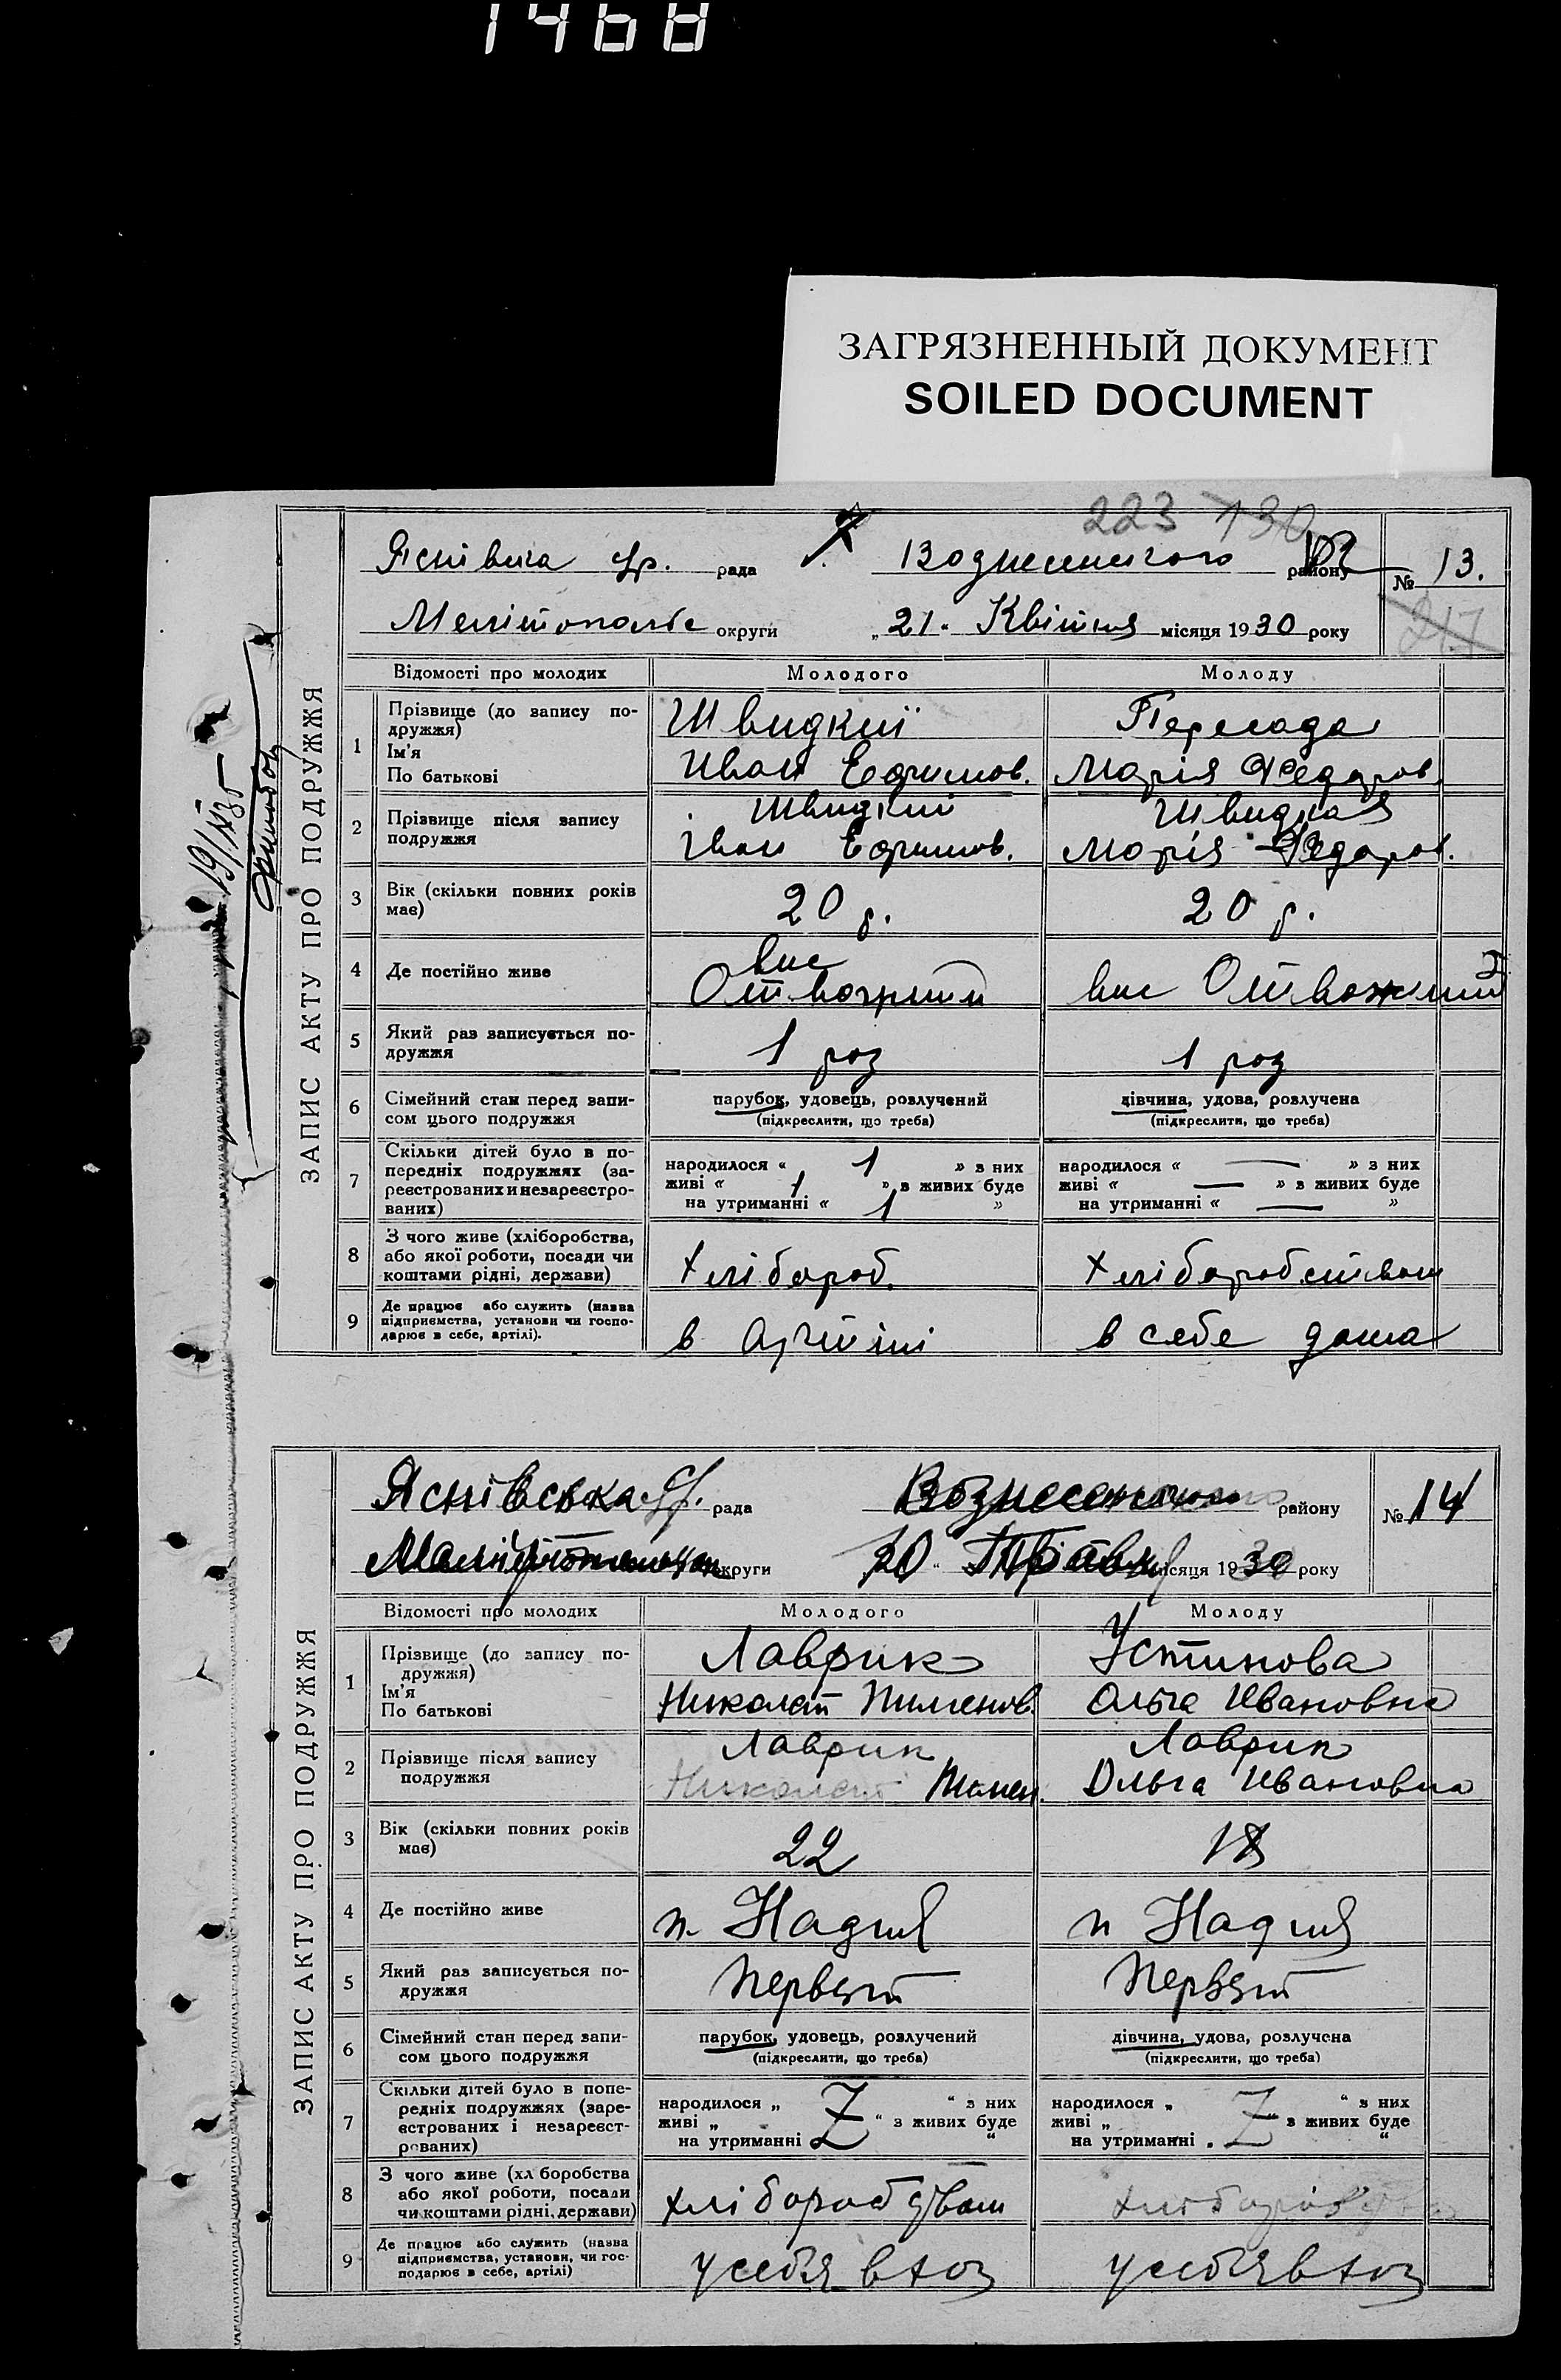 1468
ЗАГРЯЗНЕННЫЙ ДОКУМЕНТ
SOILED DOCUMENT
223 130
ЗАПИС АКТУ ПРО ПОДРУЖЖЯ
рада району № 13.
округи „21“ Квітня місяця 1930 року
217
Відомості про молодих Молодого Молоду
1 Прізвище (до запису по-
дружжя)
Ім'я
По батькові
Швидкий Пересада
Иван Ефимов. Марія Федоров.
2 Прізвище після запису
подружжя
Швидкий Швидкая
Іван Ефимов. Марія Федоров.
3 Вік (скільки повних років
має)
20 р. 20 р.
4 Де постійно живе
вис вис
5 Який раз записується по-
дружжя
1 раз 1 раз
6 Сімейний стан перед запи-
сом цього подружжя
парубок, удовець, розлучений дівчина, удова, розлучена
(підкреслити, що треба) (підкреслити, що треба)
7 Скільки дітей було в по-
передніх подружжях (за-
реєстрованих и незареєстро-
ваних)
народилося « 1 » з них народилося « — » з них
живі « 1 » в живих буде живі « — » в живих буде
на утриманні « 1 » на утриманні « — »
8 З чого живе (хліборобства,
або якої роботи, посади чи
коштами рідні, держави)
хлібороб. хліборобством
9 Де працює або служить (назва
підприємства, установи чи госпо-
дарює в себе, артілі).
в Артілі в себе дома
ЗАПИС АКТУ ПРО ПОДРУЖЖЯ
Яснівська рада району № 14
округи місяця 1930 року
Відомості про молодих Молодого Молоду
1 Прізвище (до запису по-
дружжя)
Ім'я
По батькові
Лаврик Устинова
Николай Пименов. Ольга Ивановна
2 Прізвище після запису
подружжя
Лаврик Лаврик
Николай Пимен. Ольга Ивановна
3 Вік (скільки повних років
має)
22 18
4 Де постійно живе
п. Надия п Надия
5 Який раз записується по-
дружжя
Первый Первый
6 Сімейний стан перед запи-
сом цього подружжя
парубок, удовець, розлучений дівчина, удова, розлучена
(підкреслити, що треба) (підкреслити, що треба)
7 Скільки дітей було в попе-
редніх подружжях (заре-
єстрованих і незареєст-
рованих)
народилося „ “ з них народилося „ “ з них
живі „ “ з живих буде живі „ “ з живих буде
на утриманні “ на утриманні „ “
8 З чого живе (хліборобства
або якої роботи, посади
чи коштами рідні, держави)
хліборобством
9 Де працює або служить (назва
підприємства, установи, чи гос-
подарює в себе, артілі)
у себя в хоз у себя в хоз